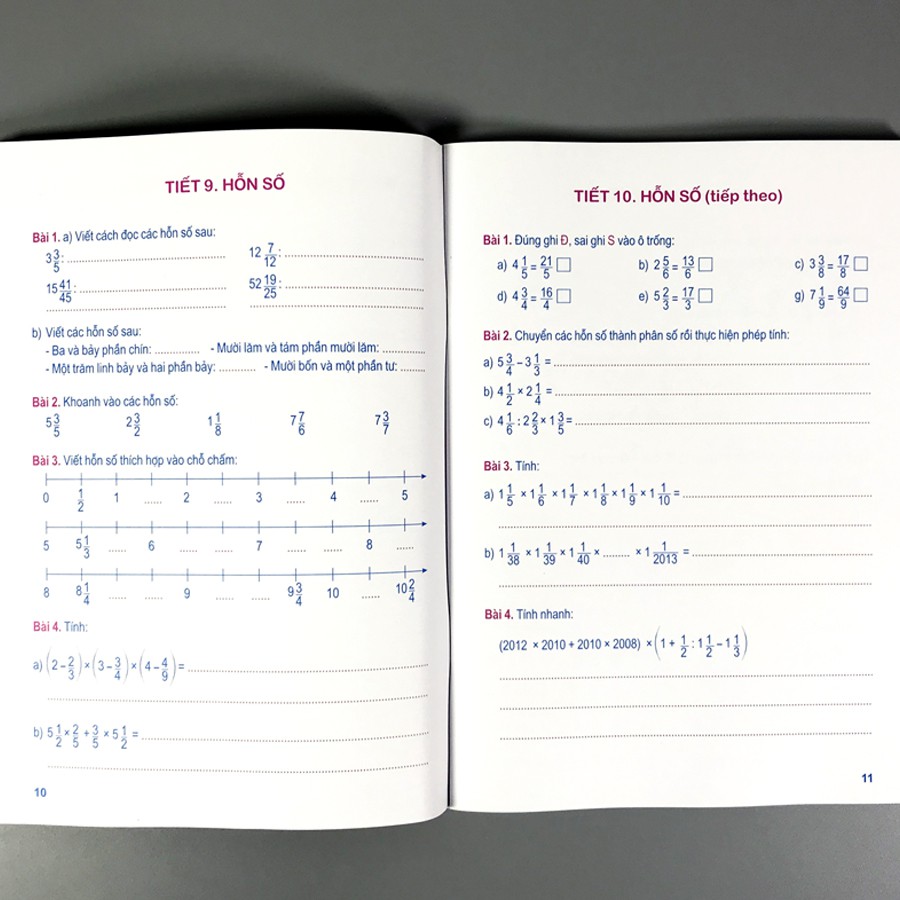 TIẾT 9. HỖN SỐ
Bài 1. a) Viết cách đọc các hỗn số sau:
3 3/5: .......... 12 7/12: ..........
15 41/45: .......... 52 19/25: ..........
b) Viết các hỗn số sau:
- Ba và bảy phần chín: .......... - Mười lăm và tám phần mười lăm: ..........
- Một trăm linh bảy và hai phần bảy: .......... - Mười bốn và một phần tư: ..........
Bài 2. Khoanh vào các hỗn số:
5 3/5 2 3/2 1 1/8 7 7/6 7 3/7
Bài 3. Viết hỗn số thích hợp vào chỗ chấm:
0 1/2 1 ...... 2 ...... 3 ...... 4 ...... 5
5 5 1/3 ...... 6 ...... ...... 7 ...... ...... 8 ......
8 8 1/4 ...... ...... 9 ...... ...... 9 3/4 10 ...... 10 2/4
Bài 4. Tính:
a) (2 − 2/3) × (3 − 3/4) × (4 − 4/9) = ..........
b) 5 1/2 × 2/5 + 3/5 × 5 1/2 = ..........
10
TIẾT 10. HỖN SỐ (tiếp theo)
Bài 1. Đúng ghi Đ, sai ghi S vào ô trống:
a) 4 1/5 = 21/5 □ b) 2 5/6 = 13/6 □ c) 3 3/8 = 17/8 □
d) 4 3/4 = 16/4 □ e) 5 2/3 = 17/3 □ g) 7 1/9 = 64/9 □
Bài 2. Chuyển các hỗn số thành phân số rồi thực hiện phép tính:
a) 5 3/4 − 3 1/3 = ..........
b) 4 1/2 × 2 1/4 = ..........
c) 4 1/6 : 2 2/3 × 1 3/5 = ..........
Bài 3. Tính:
a) 1 1/5 × 1 1/6 × 1 1/7 × 1 1/8 × 1 1/9 × 1 1/10 = ..........
b) 1 1/38 × 1 1/39 × 1 1/40 × ......... × 1 1/2013 = ..........
Bài 4. Tính nhanh:
(2012 × 2010 + 2010 × 2008) × (1 + 1/2 : 1 1/2 − 1 1/3)
11